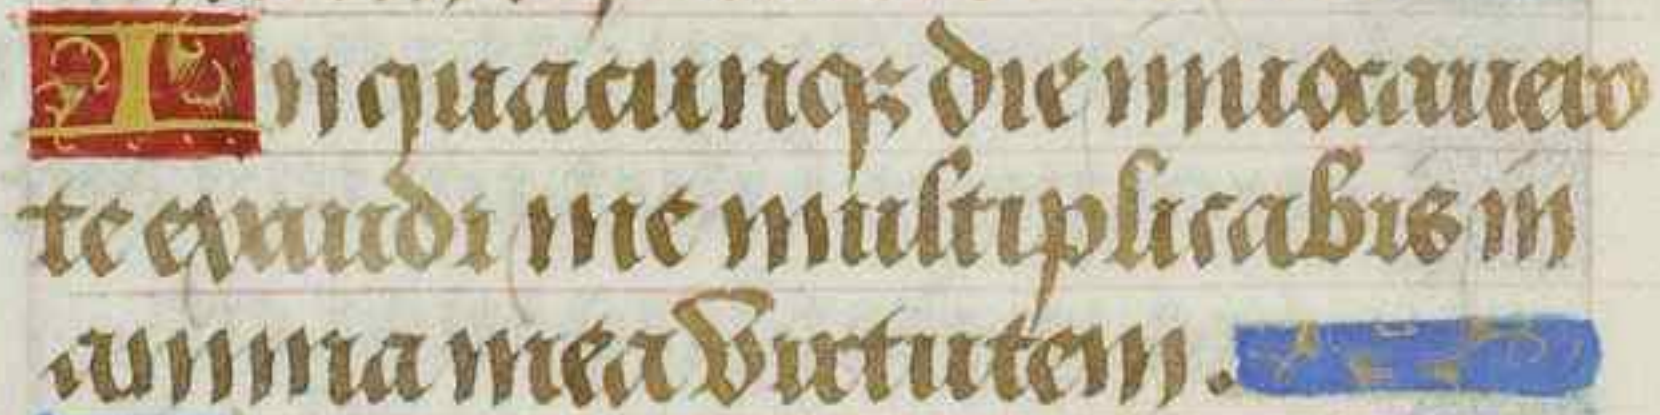 In quacunqȝ die inuocauero
te exaudi me multiplicabis in
anima mea virtutem.